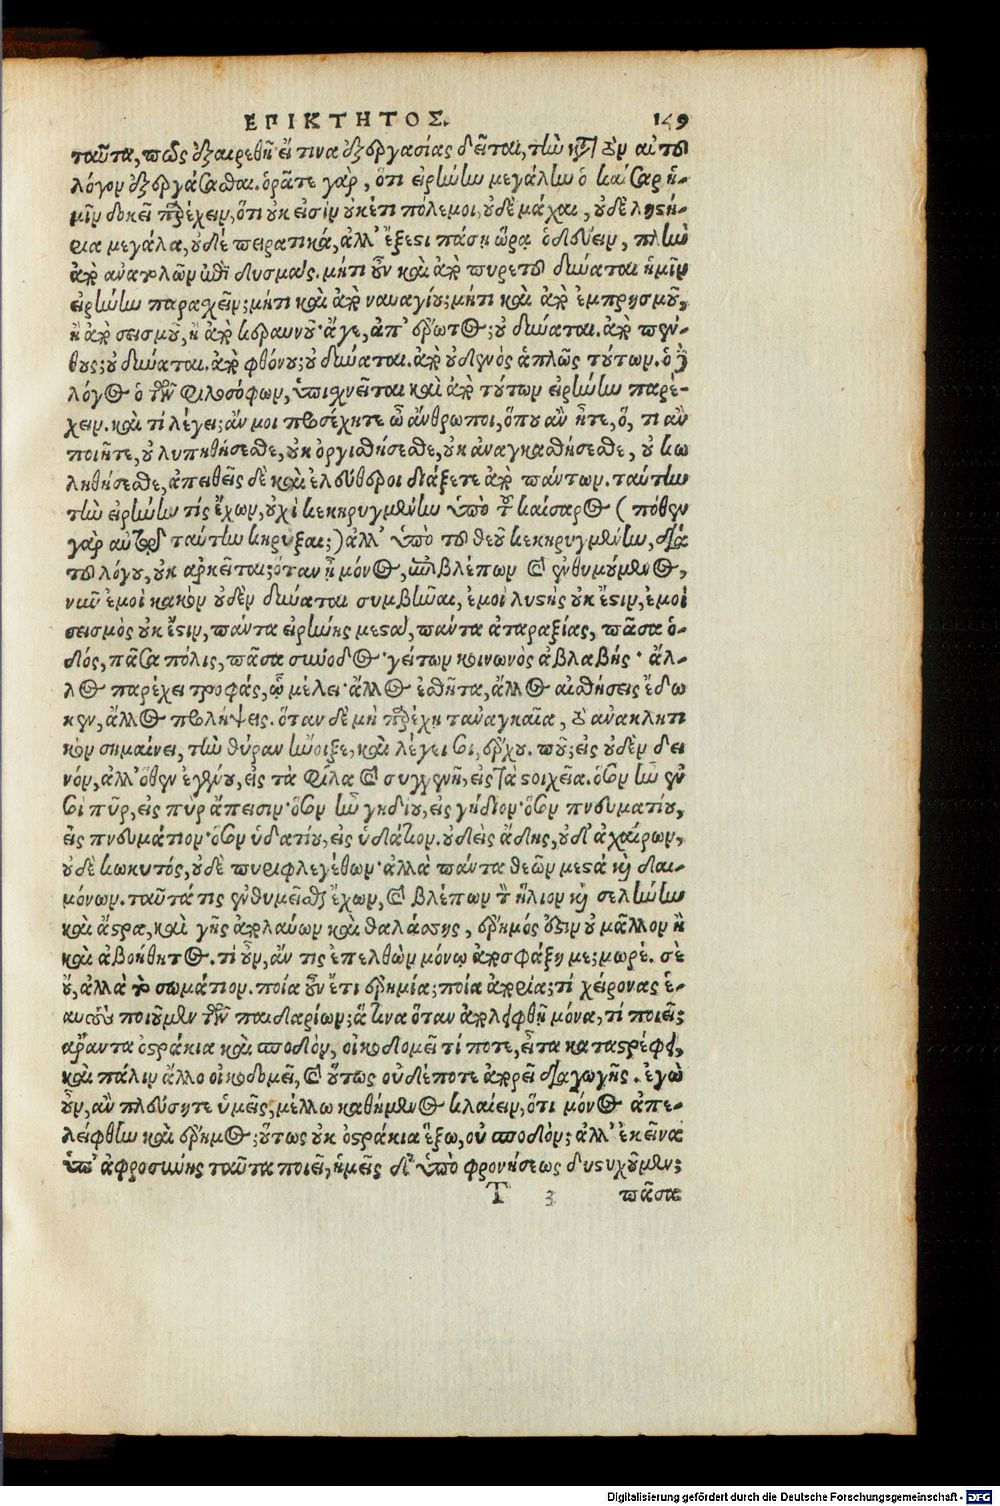 ΕΠΙΚΤΗΤΟΣ. 149
ταῦτα, πῶς ἐξαιρεθῇ εἴ τινα ἐξεργασίας δεῖται, τὴν κατ' αὐτὸ
λόγον ἐξεργάσασθαι. ὁρᾶτε γὰρ, ὅτι εἰρήνην μεγάλην ὁ καῖσαρ ἡ-
μῖν δοκεῖ παρέχειν, ὅτι οὐκ εἰσὶν οὐκέτι πόλεμοι, οὐδὲ μάχαι, οὐδὲ λῃστή-
ρια μεγάλα, οὐδὲ πειρατικά, ἀλλ' ἔξεστι πάσῃ ὥρᾳ ὁδεύειν, πλεῖν
ἀπὸ ἀνατολῶν ἐπὶ δυσμάς. μήτι οὖν καὶ ἀπὸ πυρετοῦ δύναται ἡμῖν
εἰρήνην παραχεῖν; μήτι καὶ ἀπὸ ναυαγίου; μήτι καὶ ἀπὸ ἐμπρησμοῦ,
ἢ ἀπὸ σεισμοῦ, ἢ ἀπὸ κεραυνοῦ· ἄγε, ἀπ' ἔρωτος; οὐ δύναται. ἀπὸ πέν-
θους; οὐ δύναται. ἀπὸ φθόνου; οὐ δύναται. ἀπὸ οὐδενὸς ἁπλῶς τούτων. ὁ δὲ
λόγος ὁ τῶν φιλοσόφων, ὑπισχνεῖται καὶ ἀπὸ τούτων εἰρήνην παρέ-
χειν. καὶ τί λέγει; ἄν μοι προσέχητε ὦ ἄνθρωποι, ὅπου ἂν ἦτε, ὅ, τι ἂν
ποιῆτε, οὐ λυπηθήσεσθε, οὐκ ὀργισθήσεσθε, οὐκ ἀναγκασθήσεσθε, οὐ κω
λυθήσεσθε, ἀπαθεῖς δὲ καὶ ἐλεύθεροι διάξετε ἀπὸ πάντων. ταύτην
τὴν εἰρήνην τίς ἔχων, οὐχὶ κεκηρυγμένην ὑπὸ τοῦ καίσαρος (πόθεν
γὰρ αὐτῷ ταύτην κηρύξαι;) ἀλλ' ὑπὸ τοῦ θεοῦ κεκηρυγμένην, διὰ
τοῦ λόγου, οὐκ ἀρκεῖται; ὅταν ᾖ μόνος, ἐπιβλέπων καὶ ἐνθυμούμενος,
νῦν ἐμοὶ κακὸν οὐδὲν δύναται συμβῆναι, ἐμοὶ λῃστὴς οὐκ ἔστιν, ἐμοὶ
σεισμὸς οὐκ ἔστιν, πάντα εἰρήνης μεστά, πάντα ἀταραξίας, πᾶσα ὁ-
δός, πᾶσα πόλις, πᾶσα σύνοδος· γείτων κοινωνὸς ἀβλαβής· ἄλ-
λος παρέχει τροφάς, ᾧ μέλει· ἄλλος ἐσθῆτα, ἄλλος αἰσθήσεις ἔδω
κεν, ἄλλος προλήψεις. ὅταν δὲ μὴ παρέχῃ τἀναγκαῖα, τὸ ἀνακλητι
κὸν σημαίνει, τὴν θύραν ἤνοιξε, καὶ λέγει σοι, ἔρχου. ποῦ; εἰς οὐδὲν δει
νόν, ἀλλ' ὅθεν ἐγένου, εἰς τὰ φίλα καὶ συγγενῆ, εἰς τὰ στοιχεῖα. ὅσον ἦν ἐν
σοὶ πῦρ, εἰς πῦρ ἄπεισιν· ὅσον ἦν γηδίου, εἰς γήδιον· ὅσον πνευματίου,
εἰς πνευμάτιον· ὅσον ὑδατίου, εἰς ὑδάτιον. οὐδεὶς ᾅδης, οὐδ' ἀχαίρων,
οὐδὲ κωκυτός, οὐδὲ πυριφλεγέθων· ἀλλὰ πάντα θεῶν μεστὰ καὶ δαι-
μόνων. ταῦτά τις ἐνθυμεῖσθαι ἔχων, καὶ βλέπων τὸν ἥλιον καὶ σελήνην
καὶ ἄστρα, καὶ γῆς ἀπολαύων καὶ θαλάσσης, ἔρημός ἐστιν οὐ μᾶλλον ἢ
καὶ ἀβοήθητος. τί οὖν, ἄν τις ἐπελθὼν μόνῳ ἀποσφάξῃ με; μωρέ. σὲ
οὔ, ἀλλὰ τὸ σωμάτιον. ποία οὖν ἔτι ἐρημία; ποία ἀπορία; τί χείρονας ἑ-
αυτοὺς ποιοῦμεν τῶν παιδαρίων; ἅτινα ὅταν ἀπολειφθῇ μόνα, τί ποιεῖ;
ἄραντα ὀστράκια καὶ σποδὸν, οἰκοδομεῖ τί ποτε, εἶτα καταστρέφει,
καὶ πάλιν ἄλλο οἰκοδομεῖ, καὶ οὕτως οὐδέποτε ἀπορεῖ διαγωγῆς. ἐγὼ
οὖν, ἂν πλεύσητε ὑμεῖς, μέλλω καθήμενος κλαίειν, ὅτι μόνος ἀπε-
λείφθην καὶ ἔρημος; οὕτως οὐκ ὀστράκια ἕξω, οὐ σποδὸν; ἀλλ' ἐκεῖνα
ὑπ' ἀφροσύνης ταῦτα ποιεῖ, ἡμεῖς δ' ὑπὸ φρονήσεως δυστυχοῦμεν;
T 3 πᾶσα
Digitalisierung gefördert durch die Deutsche Forschungsgemeinschaft - DFG